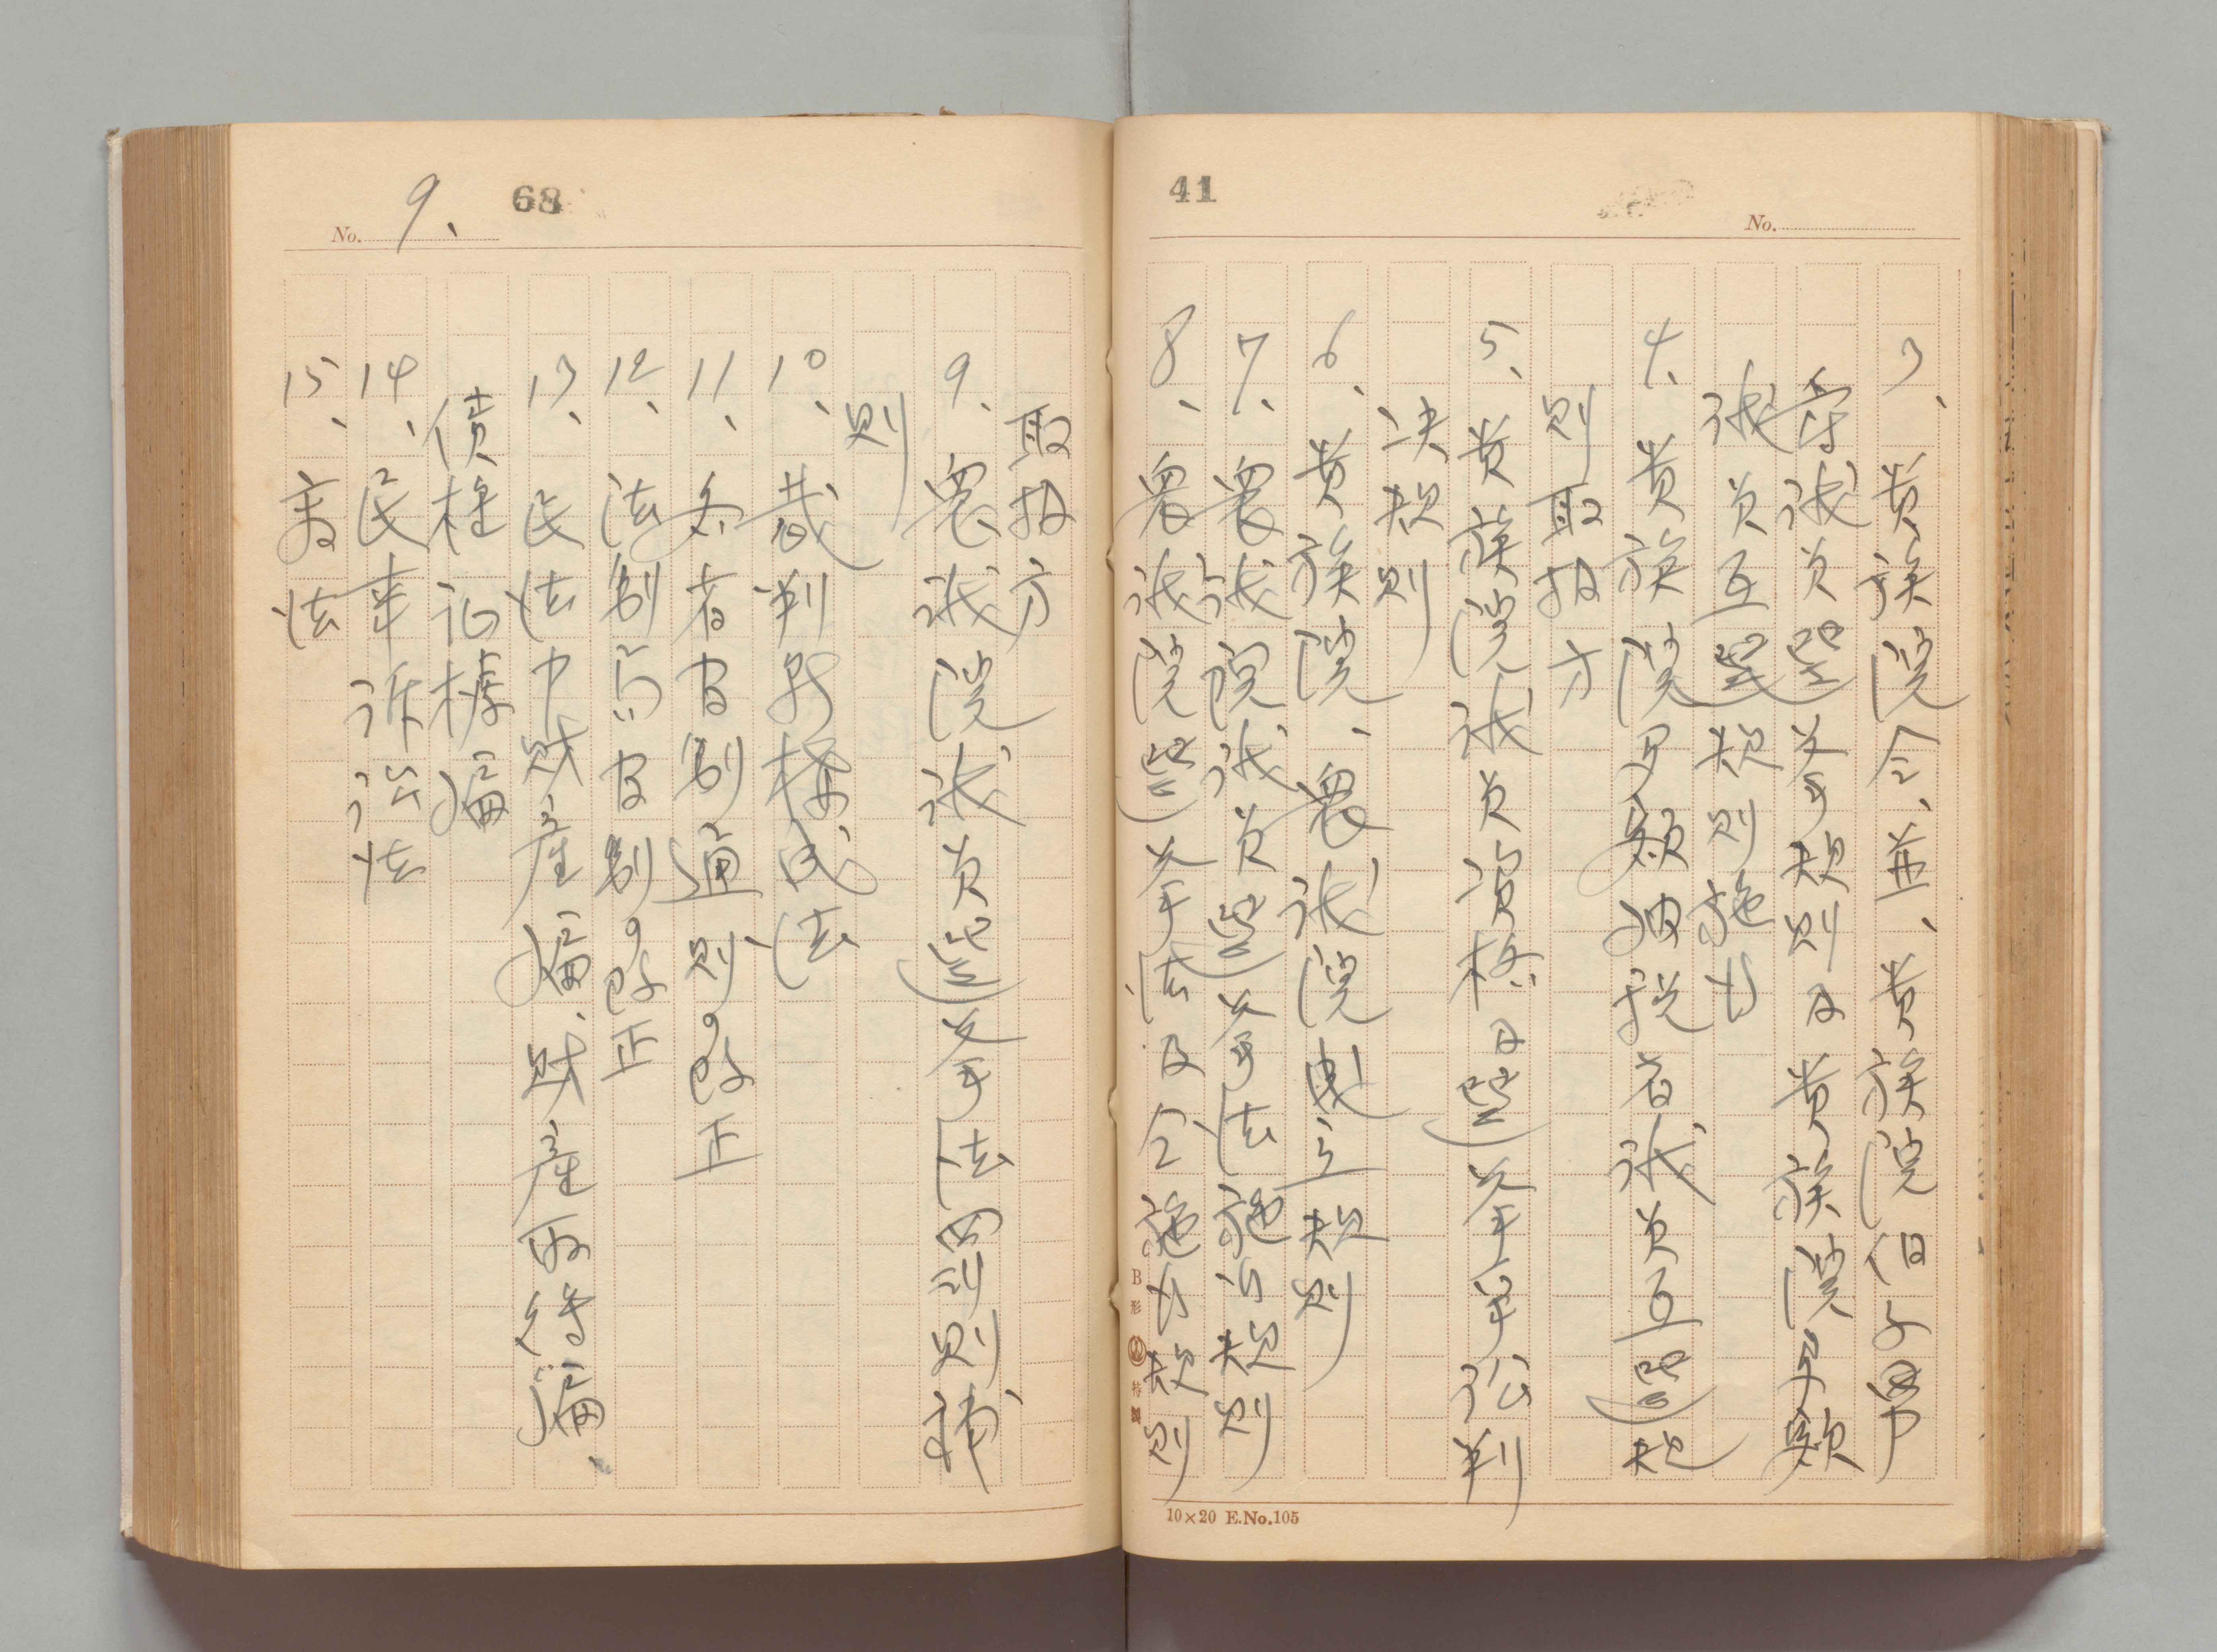 41
No.
3、貴族院令、並、貴族院伯子男
爵議員選挙規則及貴族院多額
議員互選規則施行
4、貴族院多額納税者議員互選規
則取扱方
5、貴族院議員資格及選挙争訟判
決規則
6、貴族院、衆議院成立規則
7、衆議院議員選挙法施行規則
8、衆議院選挙法及令施行規則
10×20 E.No.105
B形 特製
No. 9、
68
取扱方
9、衆議院議員選挙法罰則補
則
10、裁判所構成法
11、各省官制通則改正
12、法制局官制改正
13、民法中財産編、財産取得編、
債権証拠編
14、民事訴訟法
15、商法